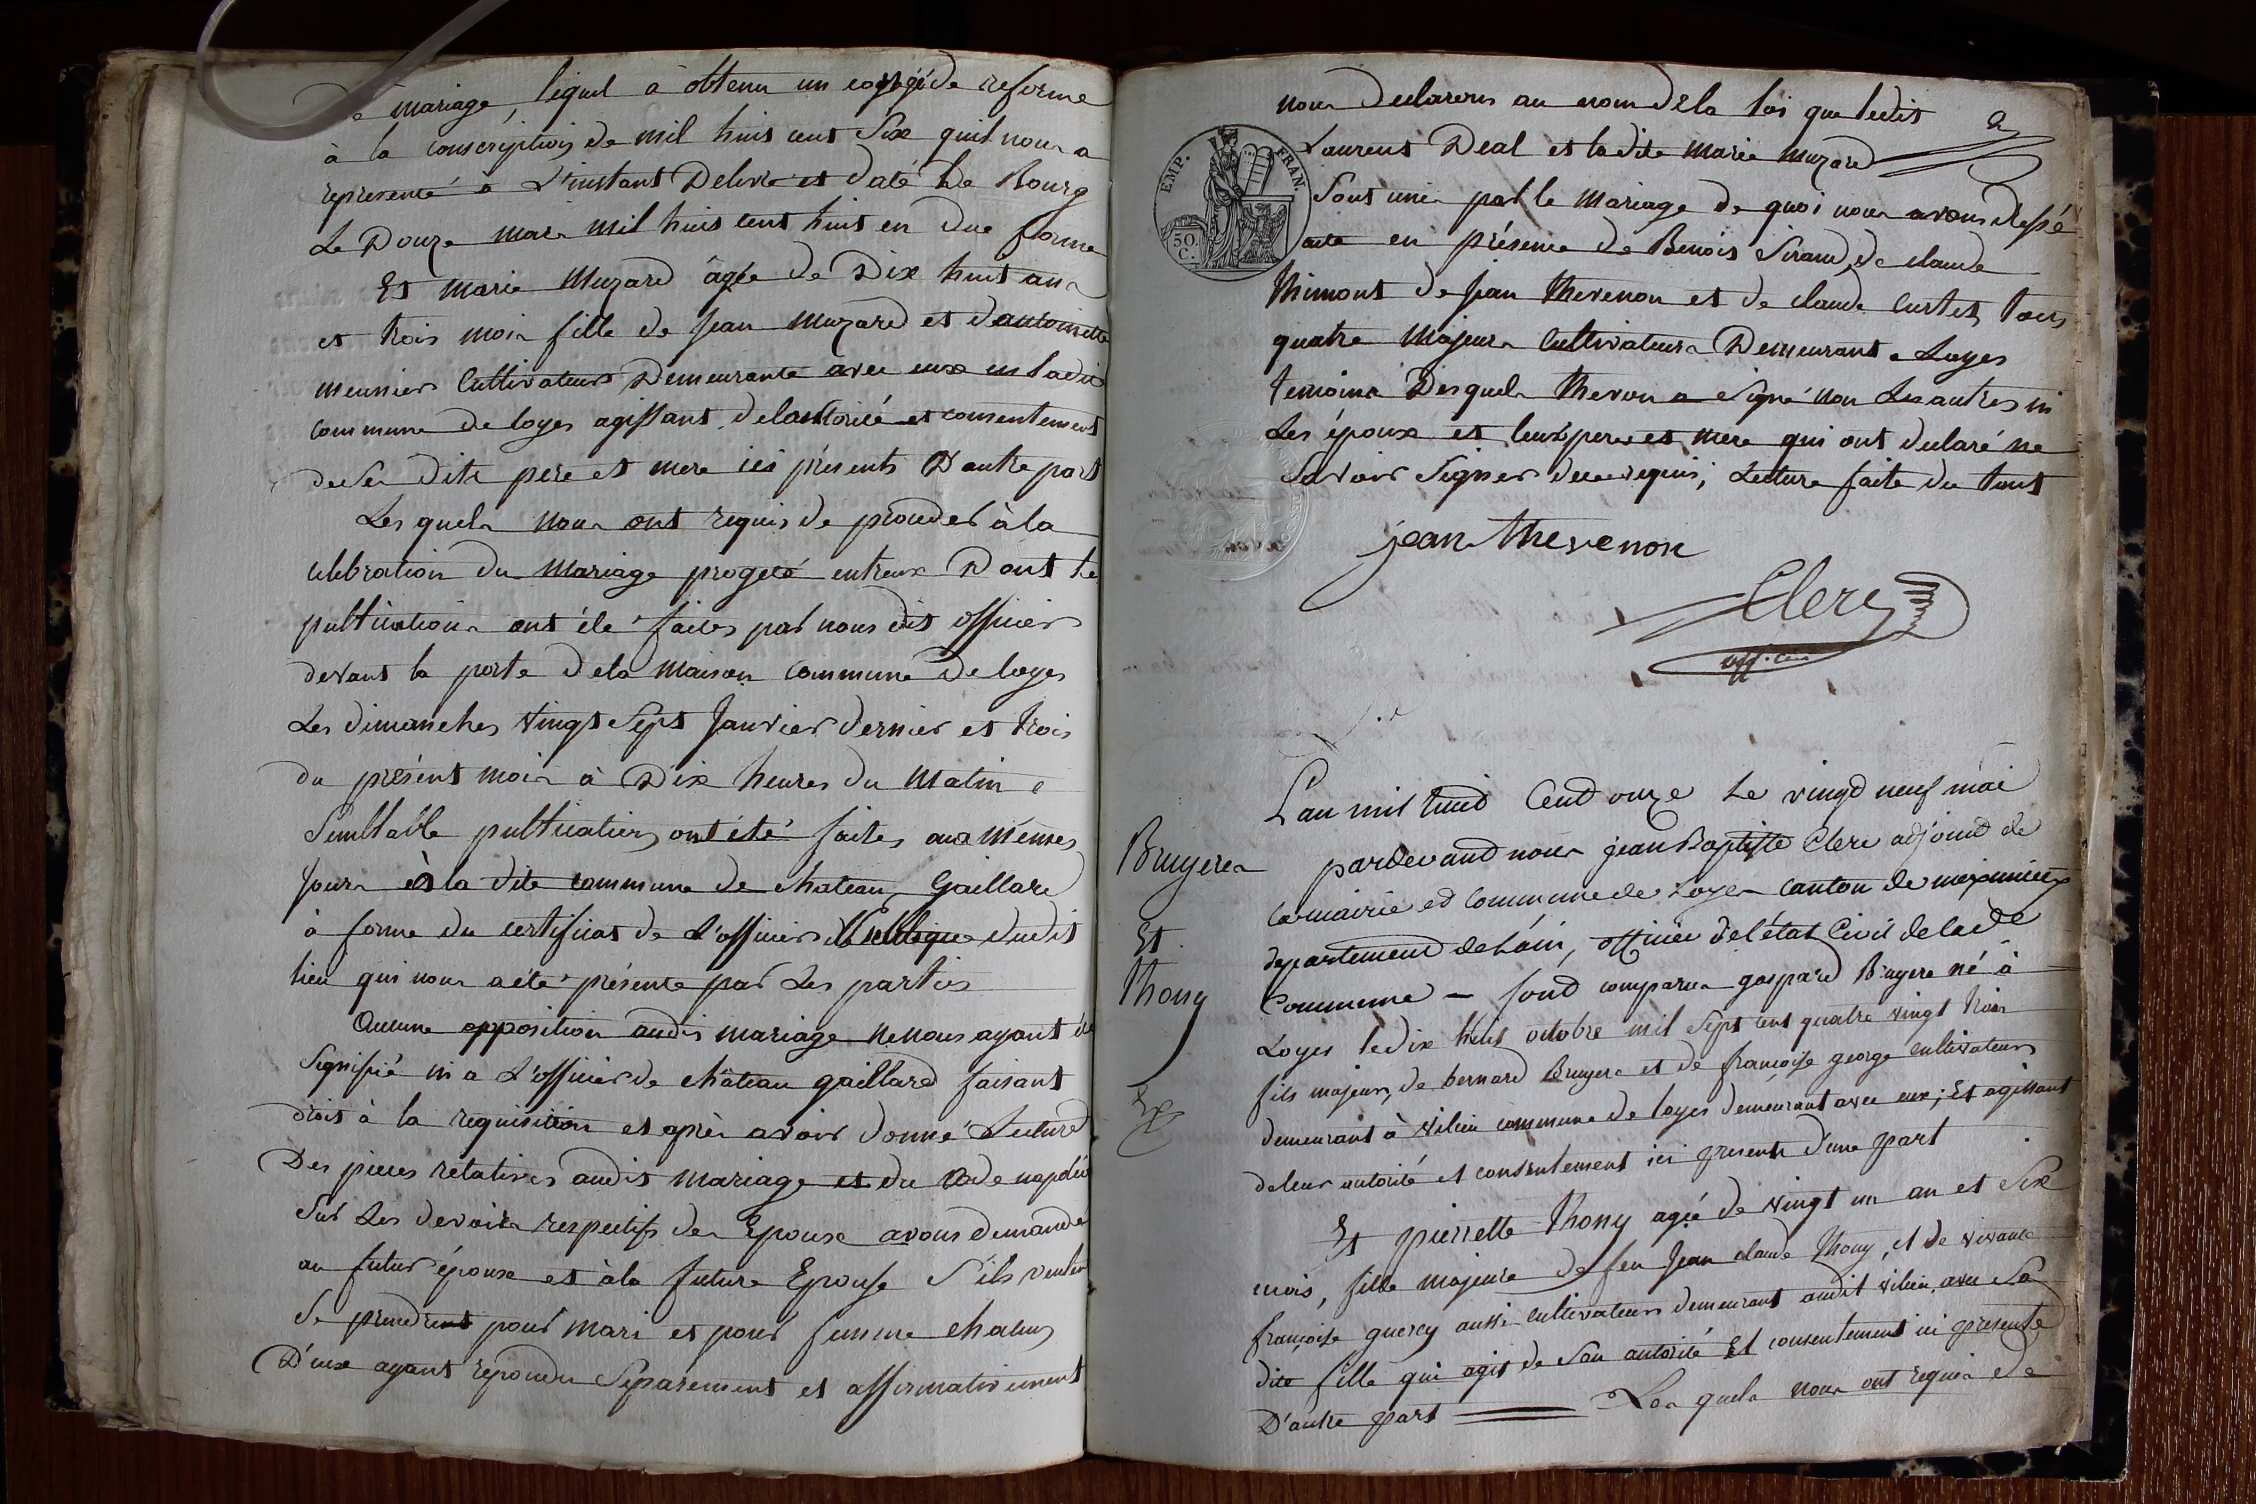 de mariage, lequel à obtenu un congé de reforme
à la conscription de mil huit cent Six quil nous a
representé à L'instant Delivré et daté de Bourg
Le Douze mars mil huit cent huit en Due forme
Et marie Muzard âgée de Dix huit ans
et trois mois fille de Jean Muzard et d'antoinette
meunier Cultivateurs Demeurante avec eux en ladite
commune de loyes agissant de lautorité et consentement
de Ses dits pere et mere ici présents D'autre part
Les quels nous ont requis de proceder à la
celebration du Mariage progeté entreux Dont les
publications ont été faites par nous dit officier
devant la porte de la Maison Commune de loyes
Les dimanches vingt Sept Janvier dernier et trois
du présent mois à Dix heures du Matin
Semblable publication ont été faites aux mêmes
Jours à la dite commune de chateau Gaillard
à forme du certificat de L'officier dudit
lieu qui nous a été présenté par Les parties
Aucune opposition audit mariage ne nous ayant été
Signifié ni a L'officier de château gaillard faisant
droit à la requisition et après avoir donné Lecture
Des pieces relatives audit mariage et du Code napoléon
Sur Les devoirs respectifs des Epoux avons demandé
au futur époux et à la future Epouse S'ils veulent
Se prendrent pour mari et pour femme chacun
D'eux ayant repondu Séparement et affirmativement
nous declarons au nom de la loi que ledit
Laurent Déal et ladite Marie Muzard
EMP. FRAN.
50. C.
Sont unis par le Mariage de quoi nous avons dressé
acte en présence de Benoit Siraud, de claude
Thimont de Jean Thevenon et de claude Curtet tous
quatre Majeurs Cultivateurs Demeurant a Loyes
temoins Desquels Thevon a Signé non Les autres ni
Les époux et leurs peres et mere qui ont declaré ne
Savoir Signer de ce requis, Lecture faite du tout
jean thevenon
Clerc
off. civil
L'an mil huit Cent onze Le vingt neuf mai
Bruyere
pardevant nous jean Baptiste Clerc adjoint de
la mairie et Commune de Loyes canton de meximieux
Et
departement de L'ain, officier de l'état Civil de la de
Thony
Commune — sont comparus gaspard Bruyere né à
Loyes le dix huit octobre mil Sept cent quatre vingt trois
fils majeur, de bernard Bruyere et de françoise george cultivateurs
demeurant à vilieu commune de loyes demeurant avec eux; Et agissant
de leur autorité et consentement ici presents d'une part
Et pierrette Thony agée de vingt un an et Six
mois, fille majeure de feu Jean claude Thony, et de vivante
françoise guercy aussi cultivateurs demeurant audit vilieu avec Sa
dite fille qui agit de Son autorité Et consentement ici presente
D'autre part Les quels nous ont requis de